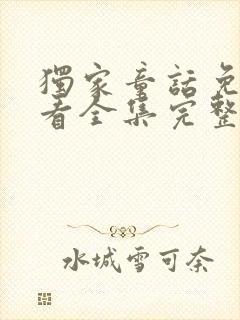 獨家童話免
看全集完整
水城雪可奈